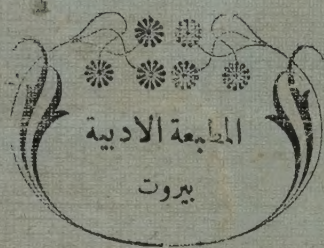 المطبعة الادبية
بيروت